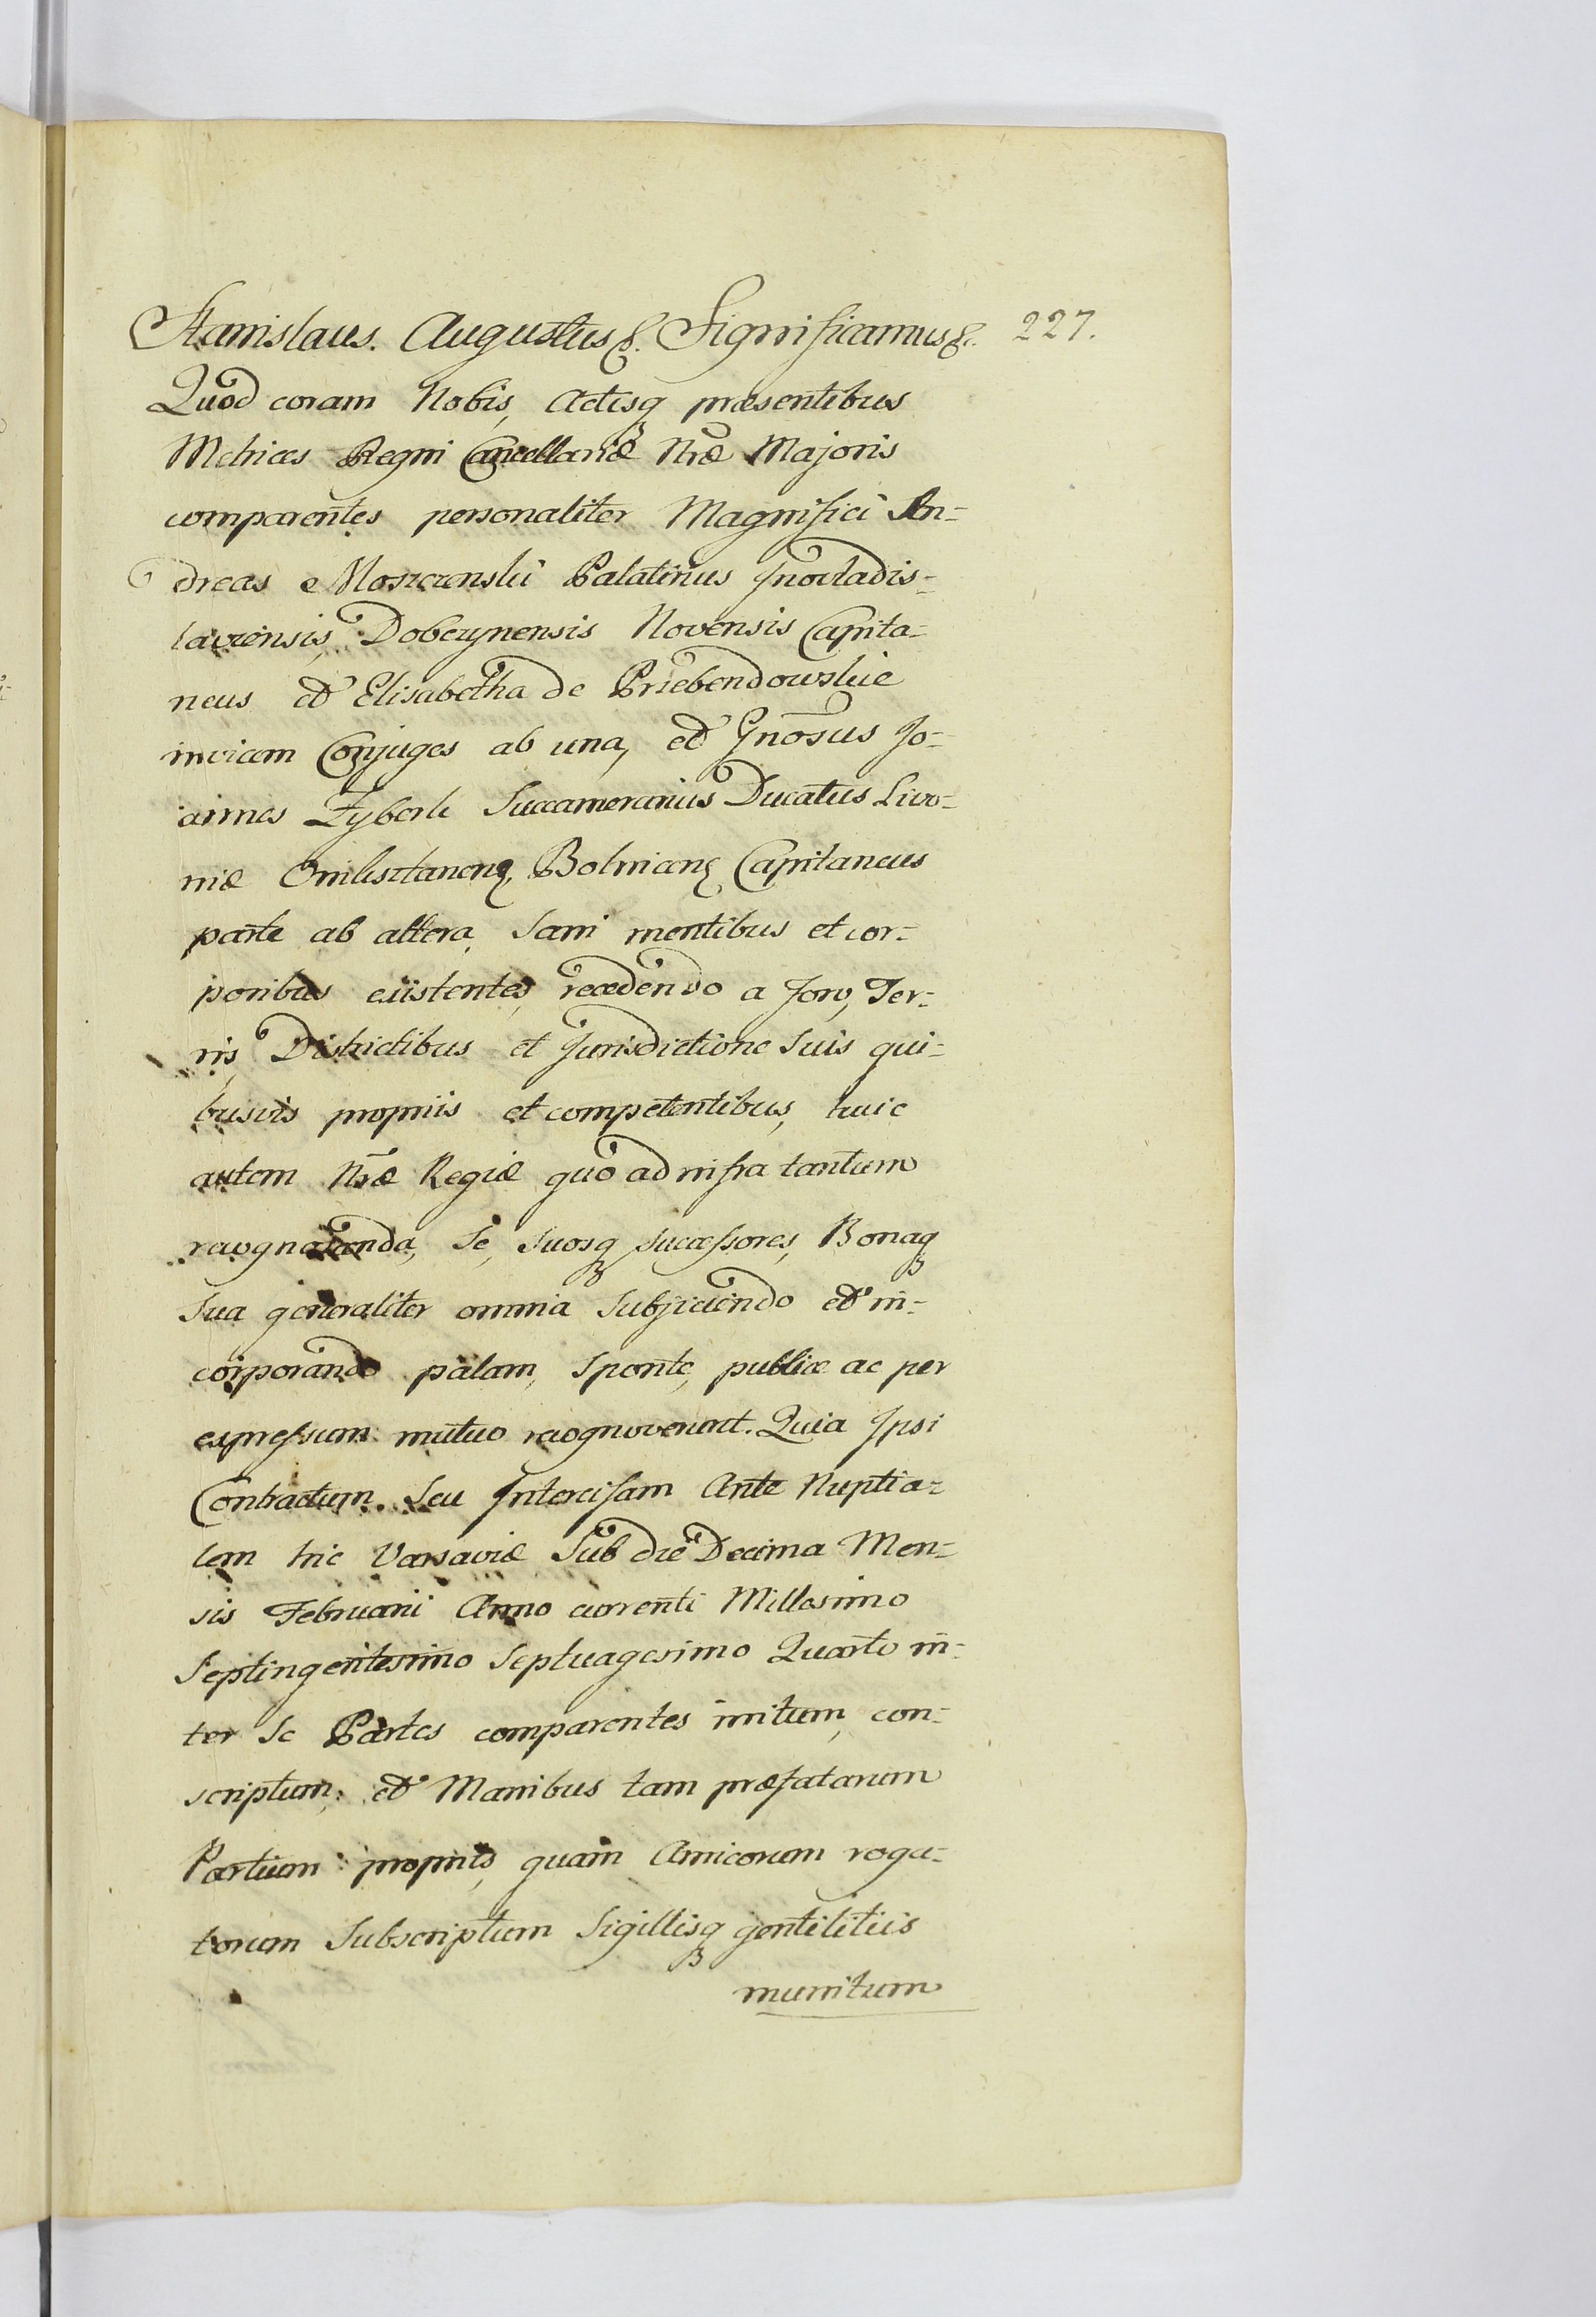 Stanislaus. Augustus &. Significamus &. 227.
Quod coram Nobis, Actisq₃ præsentibus
Metrices Regni Cancellariæ Nr̃æ Majoris
comparentes personaliter Magnifici An=
dreas e Moszczenskii Palatinus Jnovladis=
laviensis, Dobrzynensis Novensis Capita=
neus et Elisabetha de Przebendowskie
invicem Conjuges ab una, et Gñosus Jo=
annes Zyberk Succamerarius Ducatus Livo=
niæ Bolnicens Capitaneus
parte ab altera, Sani mentibus et cor=
poribus existentes, recedendo a Foro, Ter=
ris, Districtibus et Jurisdictione Suis qui=
busvis propriis et competentibus, huic
autem Nr̃æ Regiæ quo ad infra tantum
recognoscenda, Se, Suosq₃ Successores, Bonaq₃
Sua generaliter omnia Subjiciendo et in=
corporando palam, Sponte, publice ac per
expressum mutuo recognoverunt. Quia Jpsi
Contractum Seu Jntercisam Ante Nuptia=
lem hic Varsaviæ Sub die Decima Men=
sis Februarii Anno currenti Millesimo
Septingentesimo Septuagesimo Quarto in=
ter Se Partes comparentes initum, con=
scriptum, et Manibus tam præfatarum
Partium propriis, quam Amicorum roga=
torum Subscriptum Sigillisq₃ gentilitiis
munitum